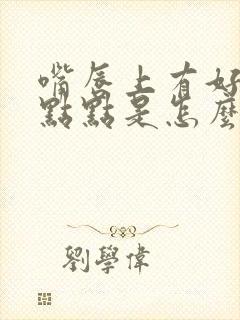 嘴唇上有好
點點是怎麼
劉學偉